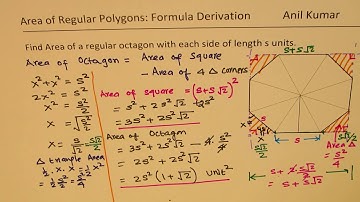 Area of Regular Polygons: Formula Derivation Anil Kumar
Find Area of a regular octagon with each side of length s units.
Area of Octagon = Area of Square
− Area of 4 Δ corners
x² + x² = s²
2x² = s²
x² = s²/2
x = √(s²/2)
x = s/√2 = s√2/2
Δ triangle Area
½ · x · x = ½x²
Area of square = (s + s√2)²
= s² + 2s²√2 + 2s²
= 3s² + 2s²√2
Area of Octagon
= 3s² + 2s²√2 − 4 · s²/4
= 2s² + 2s²√2
= 2s² (1 + √2) unit²
s + s√2
s
x
x
s
s√2/2
s
s√2/2
Area Δ
= s²/4
s + 2·s√2/2
= s + s√2